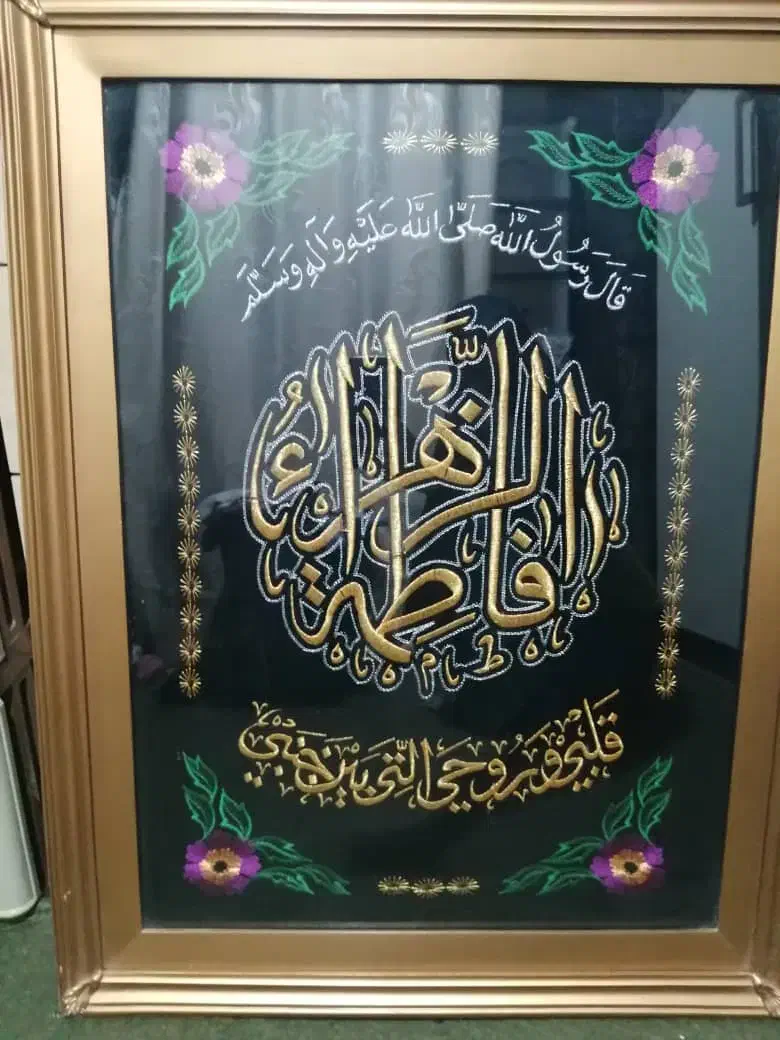 قَالَ رَسُولُ اللَّه صَلَّى اللَّه عَلَيْهِ وَآلِهِ وَسَلَّمَ
فاطمة الزهراء
قَلْبِي وَرُوحِيَ الَّتِي بَيْنَ جَنْبَيَّ